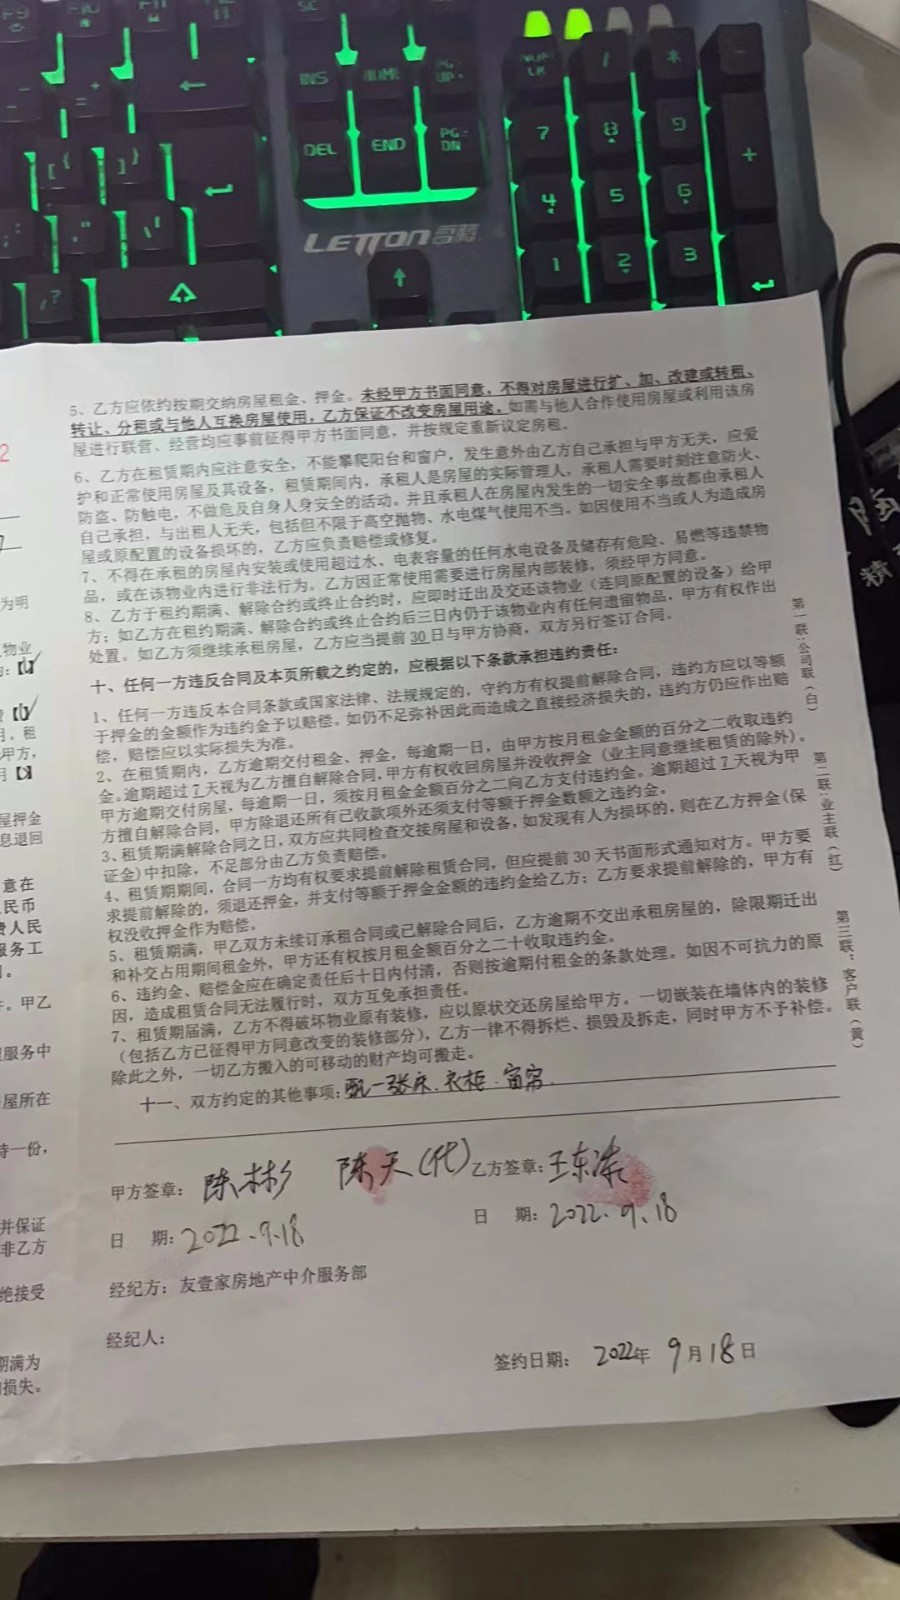 INS
HOME
PG UP
DEL
END
PG DN
7
8
9
+
4
5
6
1
2
3
LETTON
5、乙方应依约按期交纳房屋租金、押金。未经甲方书面同意，不得对房屋进行扩、加、改建或转租、
转让、分租或与他人互换房屋使用，乙方保证不改变房屋用途。如需与他人合作使用房屋或利用该房
屋进行联营、经营均应事前征得甲方书面同意，并按规定重新议定房租。
6、乙方在租赁期内应注意安全，不能攀爬阳台和窗户，发生意外由乙方自己承担与甲方无关，应爱
护和正常使用房屋及其设备，租赁期间内，承租人是房屋的实际管理人，承租人需要时刻注意防火、
防盗、防触电，不做危及自身人身安全的活动。并且承租人在房屋内发生的一切安全事故都由承租人
自己承担，与出租人无关，包括但不限于高空抛物、水电煤气使用不当。如因使用不当或人为造成房
屋或原配置的设备损坏的，乙方应负责赔偿或修复。
7、不得在承租的房屋内安装或使用超过水、电表容量的任何水电设备及储存有危险、易燃等违禁物
品，或在该物业内进行非法行为。乙方因正常使用需要进行房屋内部装修，须经甲方同意。
8、乙方于租约期满、解除合约或终止合约时，应即时迁出及交还该物业（连同原配置的设备）给甲
方；如乙方在租约期满、解除合约或终止合约后三日内仍于该物业内有任何遗留物品，甲方有权作出
处置。如乙方须继续承租房屋，乙方应当提前30日与甲方协商，双方另行签订合同。
十、任何一方违反合同及本页所载之约定的，应根据以下条款承担违约责任：
1、任何一方违反本合同条款或国家法律、法规规定的，守约方有权提前解除合同，违约方应以等额
于押金的金额作为违约金予以赔偿。如仍不足弥补因此而造成之直接经济损失的，违约方仍应作出赔
偿，赔偿应以实际损失为准。
2、在租赁期内，乙方逾期交付租金、押金，每逾期一日，由甲方按月租金金额的百分之二收取违约
金。逾期超过7天视为乙方擅自解除合同，甲方有权收回房屋并没收押金（业主同意继续租赁的除外）。
甲方逾期交付房屋，每逾期一日，须按月租金金额百分之二向乙方支付违约金。逾期超过7天视为甲
方擅自解除合同，甲方除退还所有已收款项外还须支付等额于押金数额之违约金。
3、租赁期满解除合同之日，双方应共同检查交接房屋和设备，如发现有人为损坏的，则在乙方押金（保
证金）中扣除，不足部分由乙方负责赔偿。
4、租赁期期间，合同一方均有权要求提前解除租赁合同，但应提前30天书面形式通知对方。甲方要
求提前解除的，须退还押金，并支付等额于押金金额的违约金给乙方；乙方要求提前解除的，甲方有
权没收押金作为赔偿。
5、租赁期满，甲乙双方未续订承租合同或已解除合同后，乙方逾期不交出承租房屋的，除限期迁出
和补交占用期间租金外，甲方还有权按月租金额百分之二十收取违约金。
6、违约金、赔偿金应在确定责任后十日内付清，否则按逾期付租金的条款处理。如因不可抗力的原
因，造成租赁合同无法履行时，双方互免承担责任。
7、租赁期届满，乙方不得破坏物业原有装修，应以原状交还房屋给甲方。一切嵌装在墙体内的装修
（包括乙方已征得甲方同意改变的装修部分），乙方一律不得拆烂、损毁及拆走，同时甲方不予补偿。
除此之外，一切乙方搬入的可移动的财产均可搬走。
十一、双方约定的其他事项：配一张床．衣柜．窗帘．
甲方签章：陈林彬 陈天(代) 乙方签章：王东涛
日 期：2022.9.18 日 期：2022.9.18
经纪方：友壹家房地产中介服务部
经纪人：
签约日期： 2022年 9月18日
第一联：公司联（白）
第二联：业主联（红）
第三联：客户联（黄）
2
为明
物业
甲方，
屋押金
息退回
意在
民币
费人民
服务工
甲乙
服务中
屋所在
持一份，
并保证
非乙方
绝接受
期满为
损失。